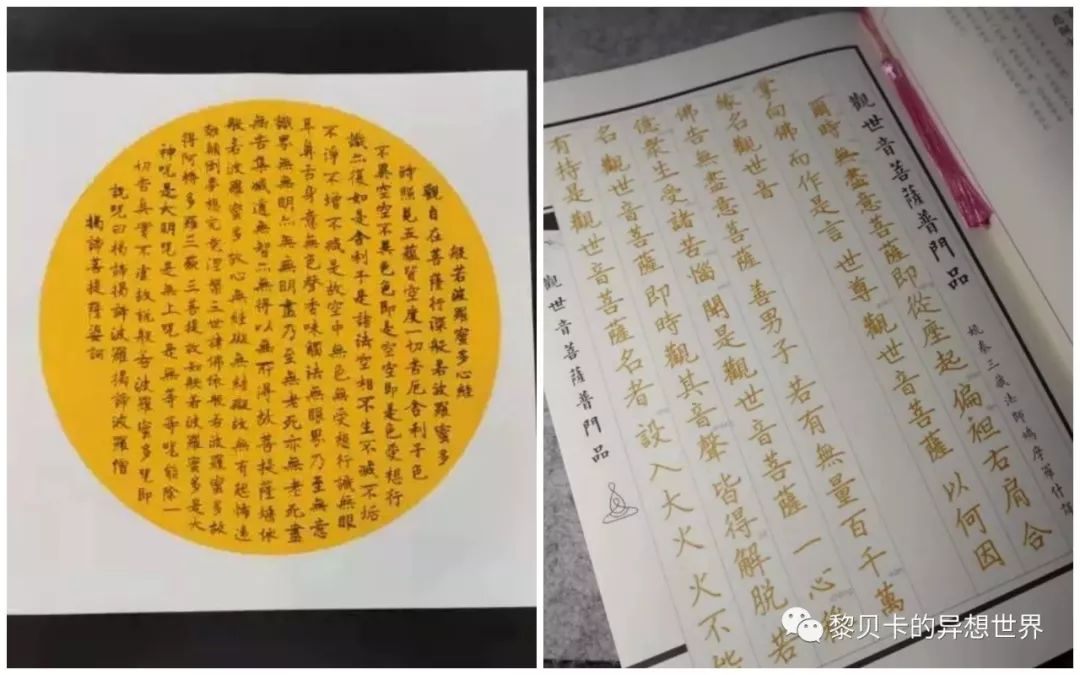 般若波羅蜜多心經
觀自在菩薩行深般若波羅蜜多
時照見五蘊皆空度一切苦厄舍利子色
不異空空不異色色即是空空即是色受想行
識亦復如是舍利子是諸法空相不生不滅不垢
不淨不增不減是故空中無色無受想行識無眼
耳鼻舌身意無色聲香味觸法無眼界乃至無意
識界無無明亦無無明盡乃至無老死亦無老死盡
無苦集滅道無智亦無得以無所得故菩提薩埵依
般若波羅蜜多故心無罣礙無罣礙故無有恐怖遠
離顛倒夢想究竟涅槃三世諸佛依般若波羅蜜多故
得阿耨多羅三藐三菩提故知般若波羅蜜多是大
神咒是大明咒是無上咒是無等等咒能除一
切苦真實不虛故說般若波羅蜜多咒即
說咒曰揭諦揭諦波羅揭諦波羅僧
揭諦菩提薩婆訶
觀世音菩薩普門品
姚秦三藏法師鳩摩羅什譯
爾時無盡意菩薩即從座起偏袒右肩合
掌向佛而作是言世尊觀世音菩薩以何因
緣名觀世音
佛告無盡意菩薩善男子若有無量百千萬
億眾生受諸苦惱聞是觀世音菩薩一心稱
名觀世音菩薩即時觀其音聲皆得解脫若
有持是觀世音菩薩名者設入大火火不能
觀世音菩薩普門品
黎贝卡的异想世界